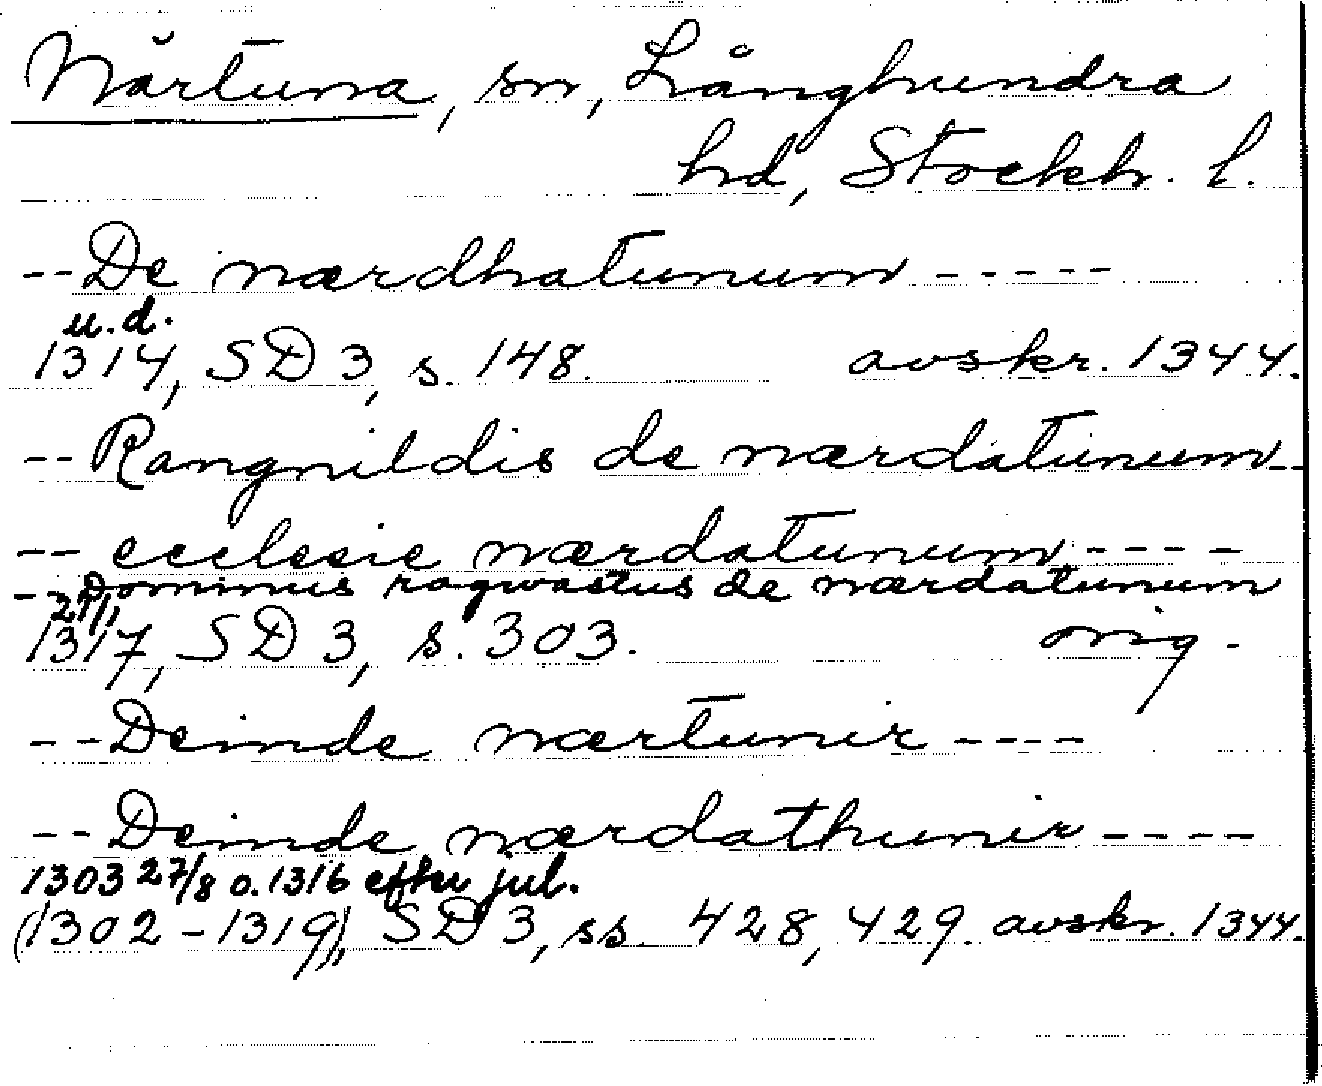 Närtuna, sn, Långhundra
hd, Stockh. l.
--De nærdhatunum-----
u.d.
1314, SD 3, s. 148. avskr. 1344.
--Rangnildis de nærdatunum--
--ecclesie nærdatunum----
--Dominus ragwastus de nærdatunum
27/1
1317, SD 3, s. 303. orig.
--Deinde nærtunir----
--Deinde nærdathunir----
1303 27/8 o. 1316 efter jul.
(1302-1319), SD 3, ss. 428, 429. avskr. 1344.